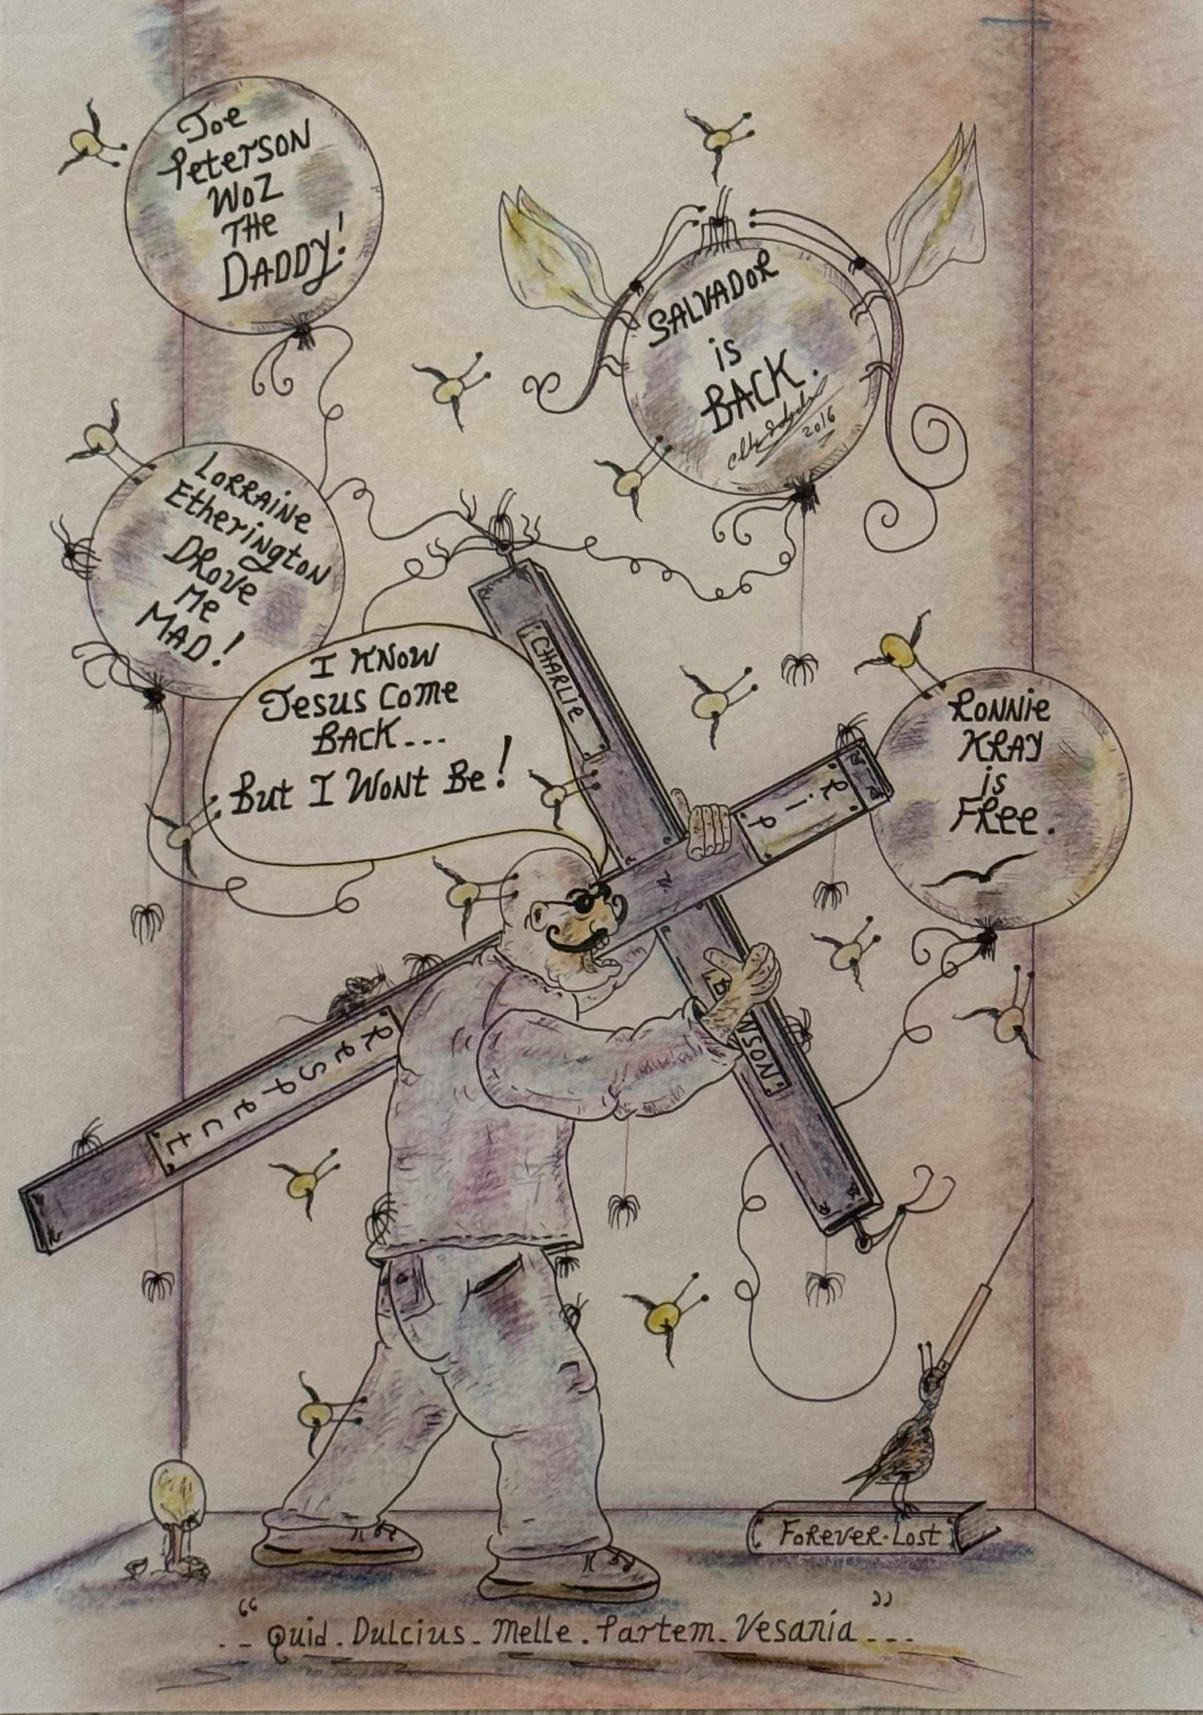 Joe
Peterson
Woz
The
Daddy!
SALVADOR
is
BACK.
2016
Lorraine
Etherington
Drove
Me
Mad!
I Know
Jesus Come
Back...
But I Wont Be!
CHARLIE
Ronnie
Kray
is
Free.
RiP
NSON
Respect
Forever.Lost
“
”
.. Quid. Dulcius. Melle. Partem. Vesania ...